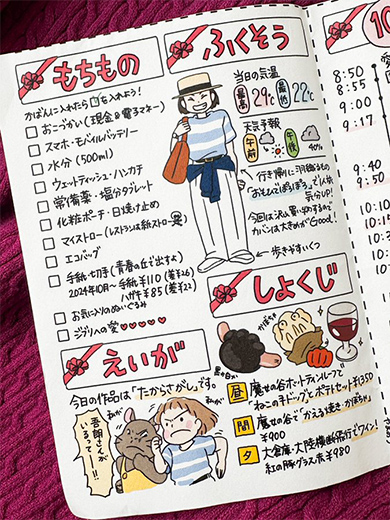 もちもの
かばんに入れたら☑を入れよう!
□ おこづかい(現金&電子マネー)
□ スマホ・モバイルバッテリー
□ 水分(500ml)
□ ウェットティッシュ・ハンカチ
□ 常備薬・塩分タブレット
□ 化粧ポーチ・日焼け止め
□ マイストロー(レストランは紙ストロー)
□ エコバッグ
□ 手紙・切手(青春の丘で出すよ)
2024年10月〜 手紙¥110(差¥26)
ハガキ¥85(差¥22)
□ お気に入りのぬいぐるみ
□ ジブリへの愛♥♥♥♥♥
ふくそう
当日の気温
最高 29℃ 最低 22℃
天気予報
午前 午後 40%
行き帰りに羽織るもの
気分UP!
今回は沢山買い物するので
カバンは大きめがGood!
← 歩きやすいくつ
えいが
今日の作品は「たからさがし」です。
吾朗さんが
いるって…!!
しょくじ
かぼちゃ
昼 魔女の谷ホットティンレフで
「ねこの手ドッグ」とポテトセット¥1350
間 魔女の谷で「かえる焼き・かぼちゃ」
¥900
夕 大倉庫・大陸横断飛行でワイン!
紅の豚グラス赤¥980
10
8:50
8:55
9:00
9:17
9:40
9:50
10:10